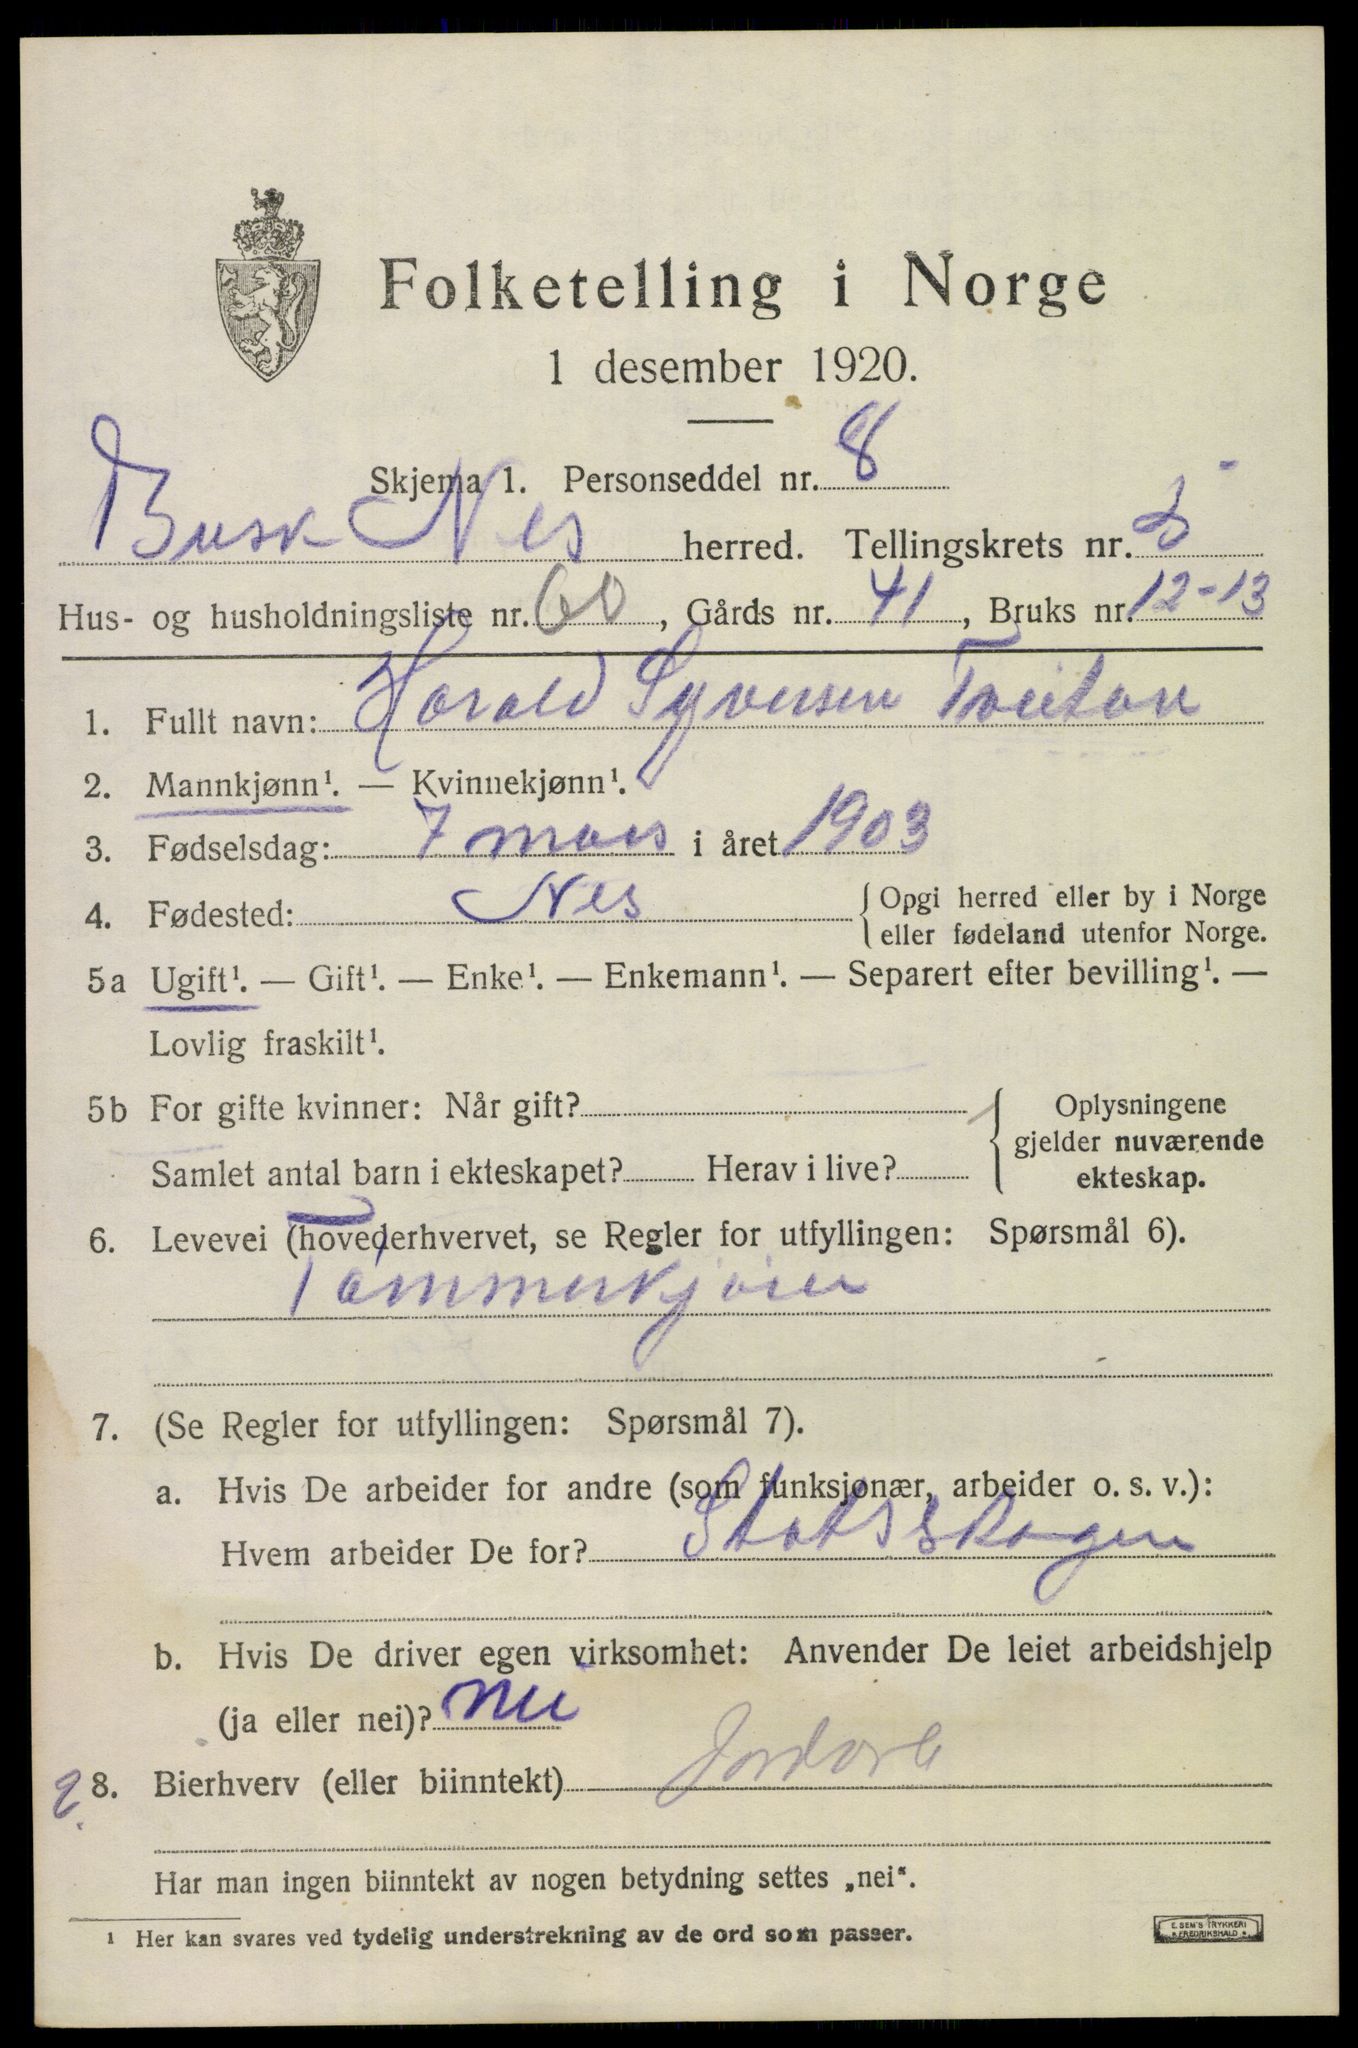 Folketelling i Norge
1 desember 1920.
Skjema 1. Personseddel nr. 8
Busk Nes herred. Tellingskrets nr. 5
Hus- og husholdningsliste nr. 60, Gårds nr. 41, Bruks nr. 12-13
1. Fullt navn: Harald Syversen
2. Mannkjønn¹. — Kvinnekjønn¹.
3. Fødselsdag: 7 mars i året 1903
4. Fødested: Nes {Opgi herred eller by i Norge
eller fødeland utenfor Norge.
5a Ugift¹. — Gift¹. — Enke¹. — Enkemann¹. — Separert efter bevilling¹. —
Lovlig fraskilt¹.
5b For gifte kvinner: Når gift? Oplysningene
gjelder nuværende
Samlet antal barn i ekteskapet? Herav i live? ekteskap.
6. Levevei (hovederhvervet, se Regler for utfyllingen: Spørsmål 6).
Tømmerkjører
7. (Se Regler for utfyllingen: Spørsmål 7).
a. Hvis De arbeider for andre (som funksjonær, arbeider o. s. v.):
Hvem arbeider De for? Statsskogen
b. Hvis De driver egen virksomhet: Anvender De leiet arbeidshjelp
(ja eller nei)? nei
8. Bierhverv (eller biinntekt)
Har man ingen biinntekt av nogen betydning settes „nei“.
¹ Her kan svares ved tydelig understrekning av de ord som passer.
E. SEM'S TRYKKERI
FREDRIKSHALD